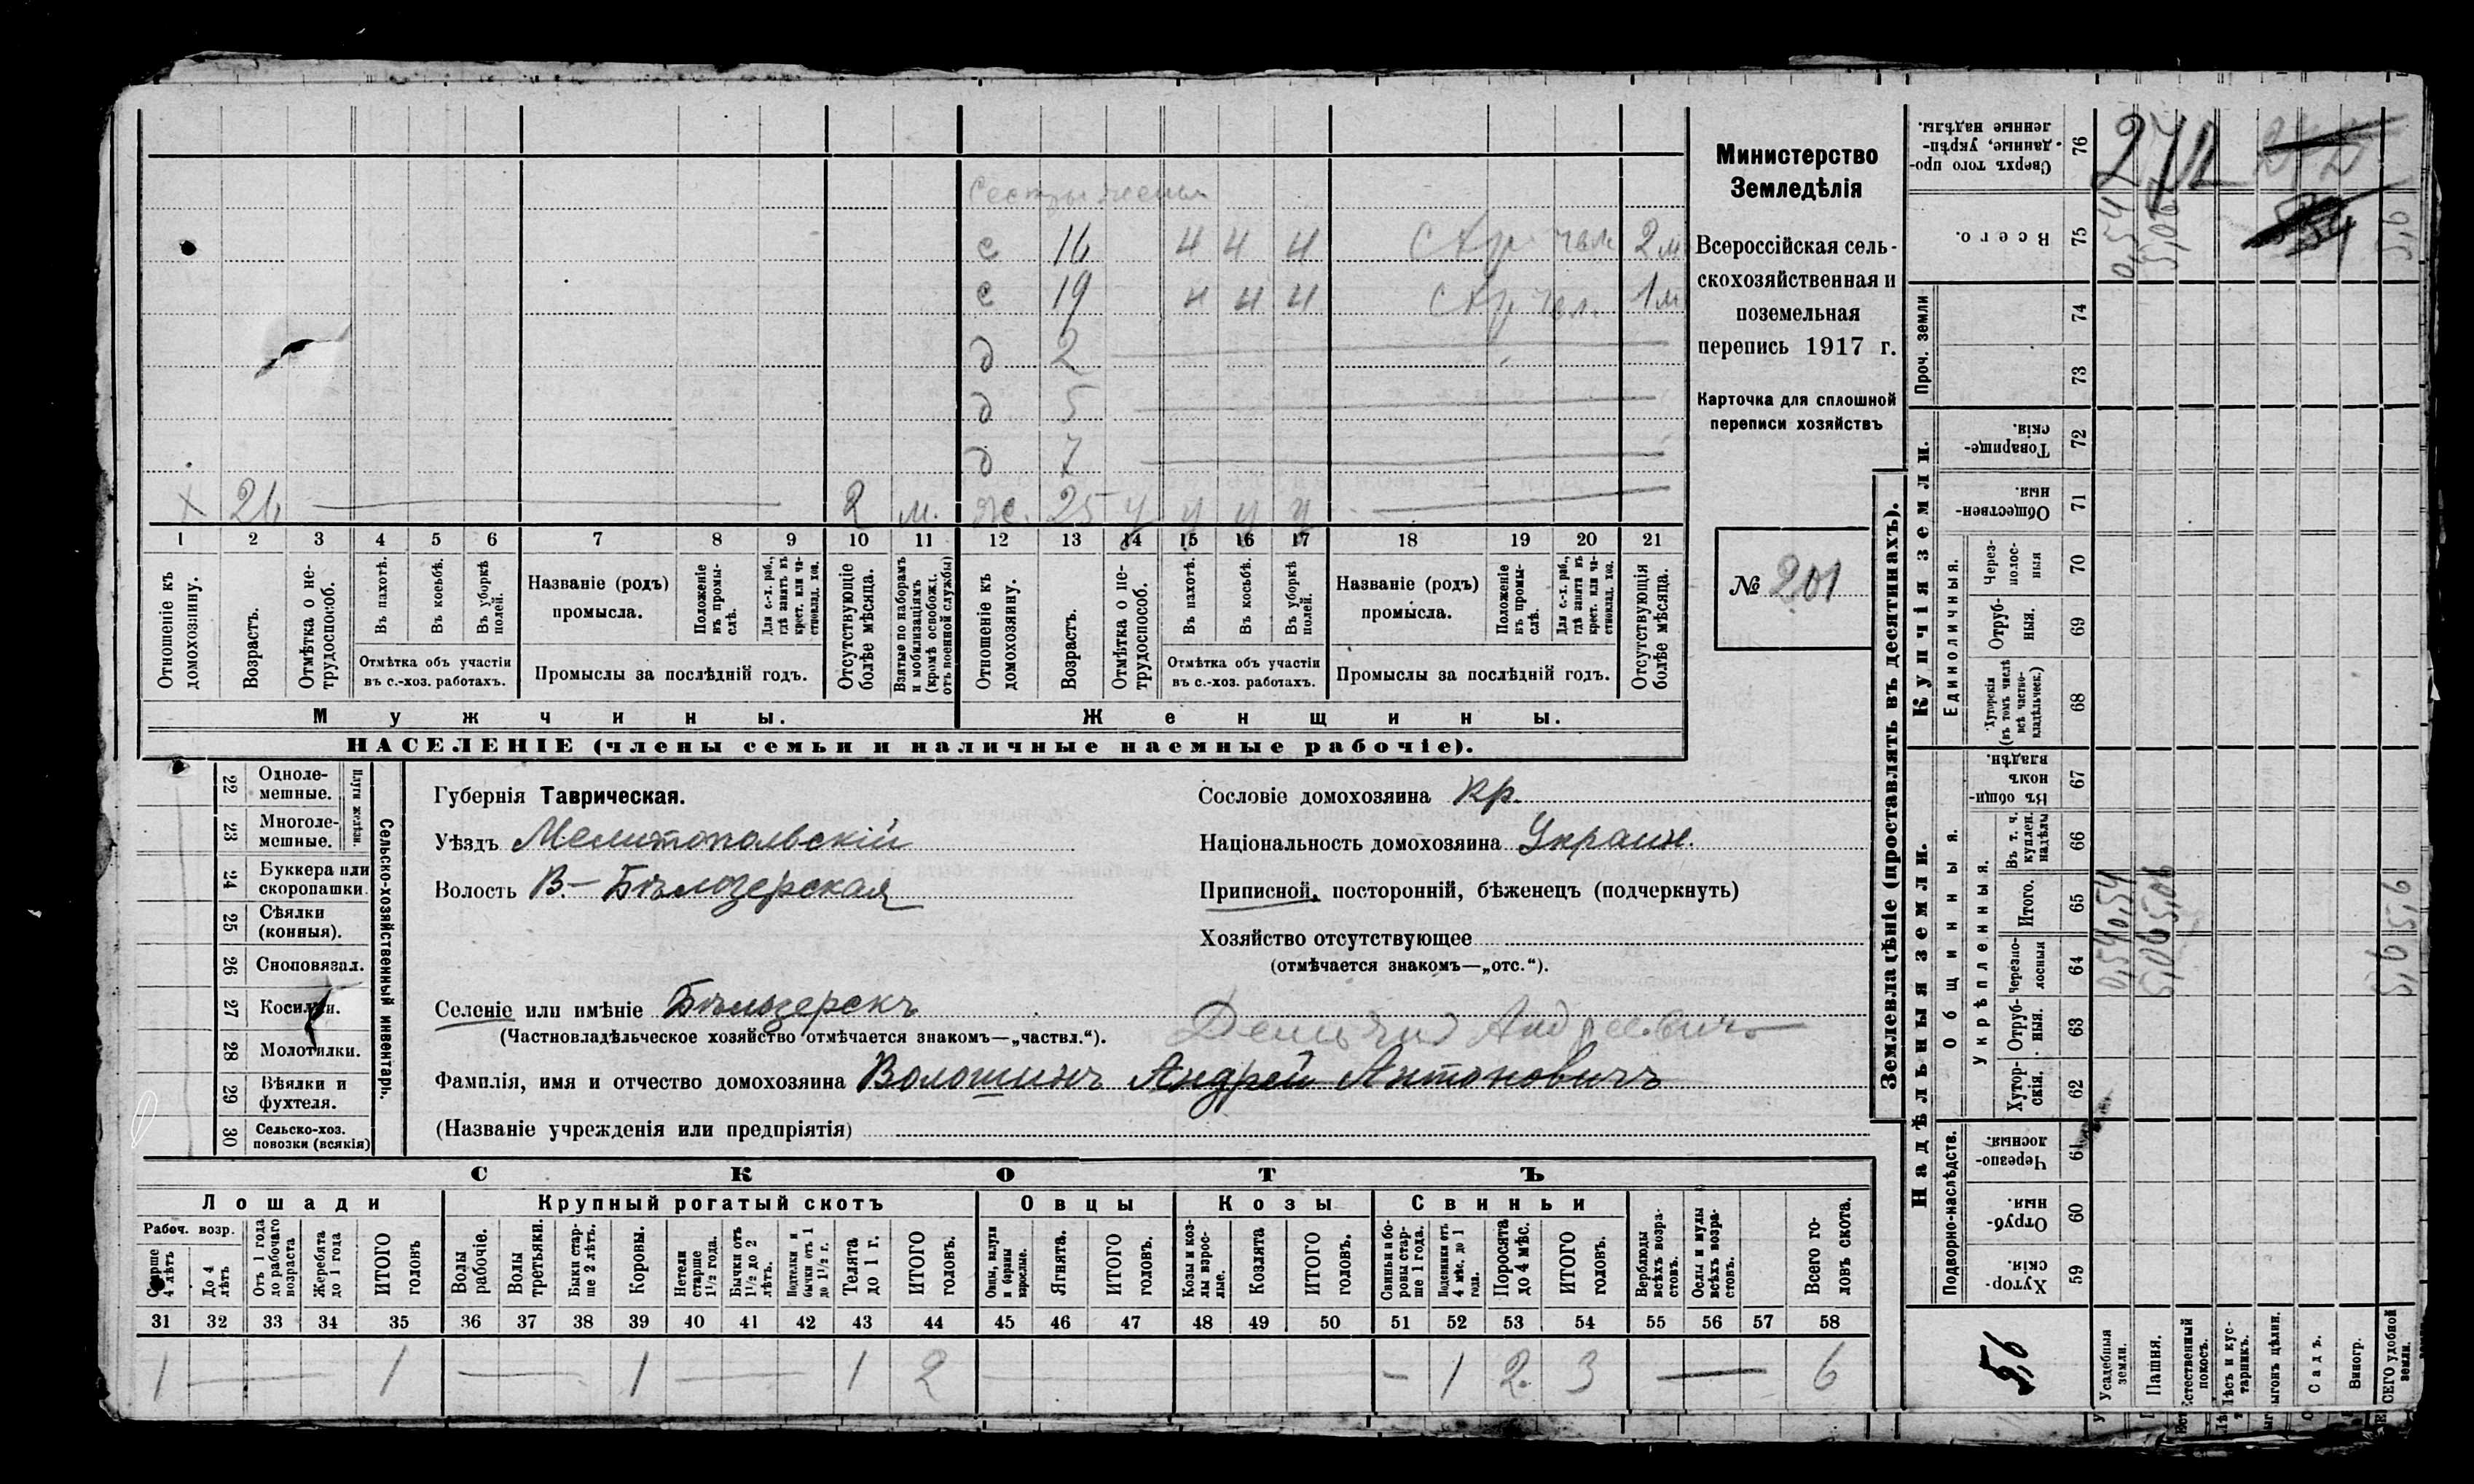 Сестры жены
с 16 ч ч ч 2 м
с 19 ч ч ч 1 м
д 2
д 5
д 7
х 26 2 м. ж. 25 у у у у
1 2 3 4 5 6 7 8 9 10 11 12 13 14 15 16 17 18 19 20 21
Отношеніе къ домохозяину.
Возрастъ.
Отмѣтка о не-трудоспособ.
Въ пахотѣ.
Въ косьбѣ.
Въ уборкѣ полей.
Отмѣтка объ участіи въ с.-хоз. работахъ.
Названіе (родъ) промысла.
Положеніе въ промы-слѣ.
Для с.-х. раб., гдѣ занятъ въ крест. или ча-стновлад. хоз.
Промыслы за послѣдній годъ.
Отсутствующіе болѣе мѣсяца.
Взятые по наборамъ и мобилизаціямъ (кромѣ освобожд. отъ военной службы)
Отношеніе къ домохозяину.
Возрастъ.
Отмѣтка о не-трудоспособ.
Въ пахотѣ.
Въ косьбѣ.
Въ уборкѣ полей.
Отмѣтка объ участіи въ с.-хоз. работахъ.
Названіе (родъ) промысла.
Положеніе въ промы-слѣ.
Для с.-х. раб., гдѣ занята въ крест. или ча-стновлад. хоз.
Промыслы за послѣдній годъ.
Отсутствующія болѣе мѣсяца.
Мужчины.
Женщины.
НАСЕЛЕНІЕ (члены семьи и наличные наемные рабочіе).
Министерство
Земледѣлія
Всероссійская сель-
скохозяйственная и
поземельная
перепись 1917 г.
Карточка для сплошной
переписи хозяйствъ
№ 201
22 Одноле-мешные.
23 Многоле-мешные.
Плуги желѣзн.
24 Буккера или скоропашки.
25 Сѣялки (конныя).
26 Сноповязал.
27 Косилки.
28 Молотилки.
29 Вѣялки и фухтеля.
30 Сельско-хоз. повозки (всякія)
Сельско-хозяйственный инвентарь.
Губернія Таврическая.
Уѣздъ Мелитопольскій
Волость В.- Бѣлозерская
Селеніе или имѣніе Бѣлозерскъ
(Частновладѣльческое хозяйство отмѣчается знакомъ—„частвл.“).
Сословіе домохозяина Кр.
Національность домохозяина Украин.
Приписной, посторонній, бѣженецъ (подчеркнуть)
Хозяйство отсутствующее
(отмѣчается знакомъ—„отс.“).
Андреевичъ
Фамилія, имя и отчество домохозяина Волошинъ Андрей Антоновичъ
(Названіе учрежденія или предпріятія)
СКОТЪ
Лошади
Крупный рогатый скотъ
Овцы
Козы
Свиньи
Рабоч. возр.
Старше 4 лѣтъ
До 4 лѣтъ
Отъ 1 года до рабочаго возраста
Жеребята до 1 года
ИТОГО головъ
Волы рабочіе.
Волы третьяки.
Быки стар-ше 2 лѣтъ.
Коровы.
Нетели старше 1½ года.
Бычки отъ 1½ до 2 лѣтъ.
Подтелки и бычки отъ 1 до 1½ г.
Телята до 1 г.
ИТОГО головъ.
Овцы, валухи и бараны взрослые.
Ягнята.
ИТОГО головъ.
Козы и коз-лы взрос-лые.
Козлята
ИТОГО головъ.
Свиньи и бо-ровы стар-ше 1 года.
Подсвинки отъ 4 мѣс. до 1 года.
Поросята до 4 мѣс.
ИТОГО головъ.
Верблюды всѣхъ возра-стовъ.
Ослы и мулы всѣхъ возра-стовъ.
Всего го-ловъ скота.
31 32 33 34 35 36 37 38 39 40 41 42 43 44 45 46 47 48 49 50 51 52 53 54 55 56 57 58
1 — 1 — 1 — 1 2 — 1 2 3 — 6
Землевладѣніе (проставлять въ десятинахъ).
Купчія земли.
Надѣльныя земли.
Сверхъ того про-данные, укрѣп-ленные надѣлы. 76
Всего. 75 0,54 5,06
Проч. земли 74 73
Товарище-скія. 72
Обществен-ныя. 71
Единоличныя.
Через-полос-ныя 70
Отруб-ныя. 69
Хуторскія (въ томъ числѣ всѣ частно-владѣльческ.) 68
Общинныя.
Въ общи-номъ владѣн. 67
Укрѣпленныя.
Въ т. ч. куплен. надѣлы 66
Итого. 65 0,54 5,06
Черезпо-лосныя 64 0,54 5,06
Отруб-ныя. 63
Хутор-скія. 62
Подворно-наслѣдств.
Черезпо-лосныя. 61
Отруб-ныя 60
Хутор-скія. 59
Усадебныя земли.
Пашня.
Естественный покосъ.
Лѣсъ и кус-тарникъ.
Выгонъ цѣлин.
Садъ.
Виногр.
ВСЕГО удобной земли.
5,6